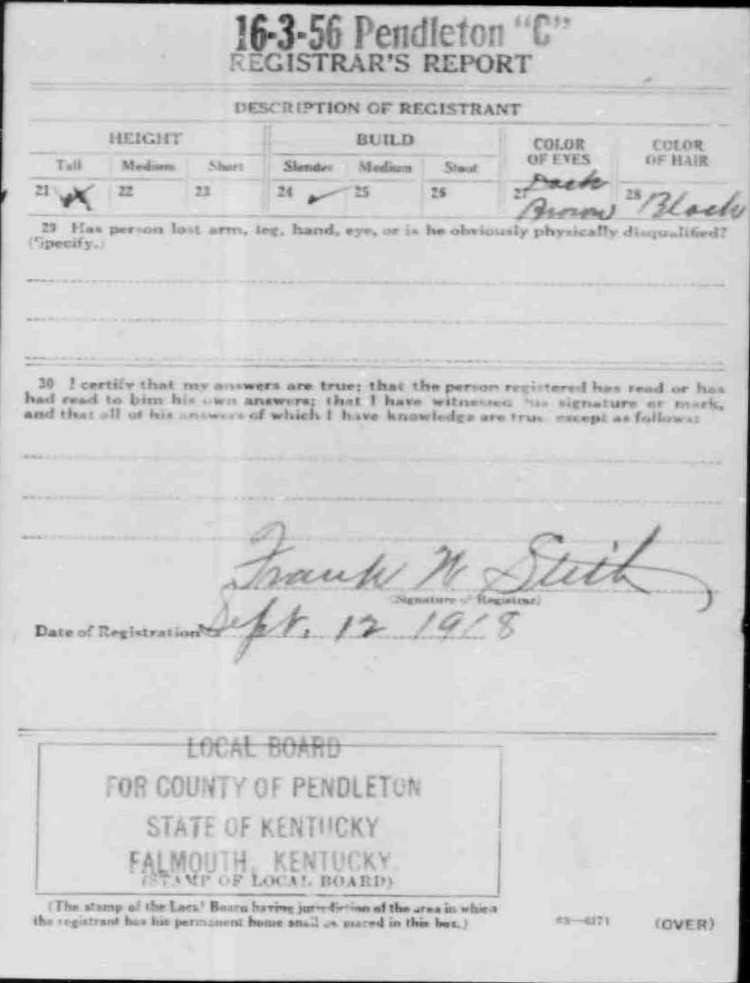 16-3-56 Pendleton "C"
REGISTRAR'S REPORT
DESCRIPTION OF REGISTRANT
HEIGHT BUILD COLOR OF EYES COLOR OF HAIR
Tall Medium Short Slender Medium Stout
21 22 23 24 ✓ 25 26 27 Dark Brown 28 Black
29 Has person lost arm, leg, hand, eye, or is he obviously physically disqualified?
(Specify.)
30 I certify that my answers are true; that the person registered has read or has
had read to him his own answers; that I have witnessed his signature or mark,
and that all of his answers of which I have knowledge are true, except as follows:
Frank N
(Signature of Registrar)
Date of Registration Sept. 12 1918
LOCAL BOARD
FOR COUNTY OF PENDLETON
STATE OF KENTUCKY
FALMOUTH, KENTUCKY.
(STAMP OF LOCAL BOARD)
(The stamp of the Local Board having jurisdiction of the area in which
the registrant has his permanent home shall be placed in this box.)
03—6171 (OVER)